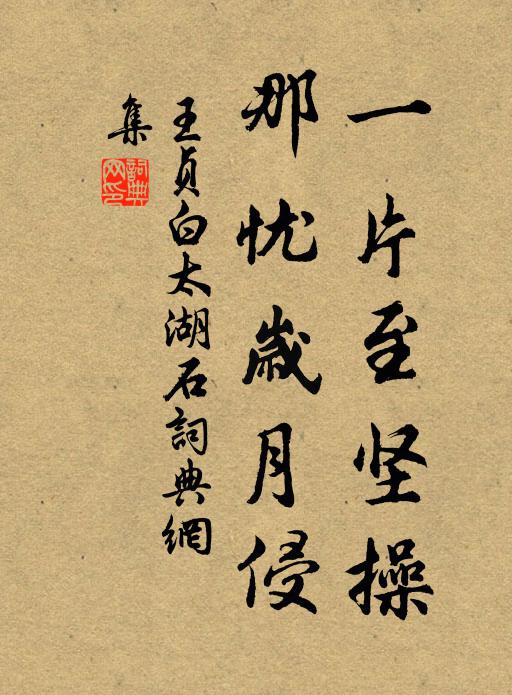 一片至坚操
那忧歲月侵
王贞白太湖石詞典網
集
詞典
网印